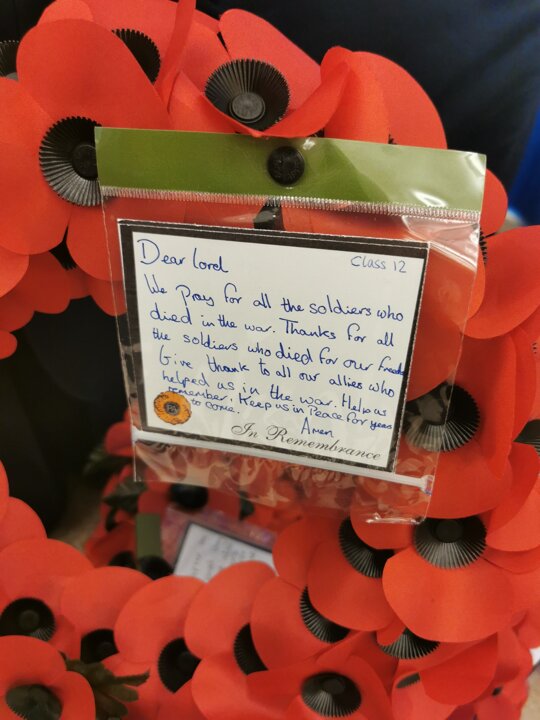 Dear Lord
Class 12
We Pray for all the soldiers who
died in the war. Thanks for all
the soldiers who died for our freedo
Give thank to all our allies who
helped us in the war. Help us
remember. Keep us in Peace for years
to come.
Amen
In Remembrance